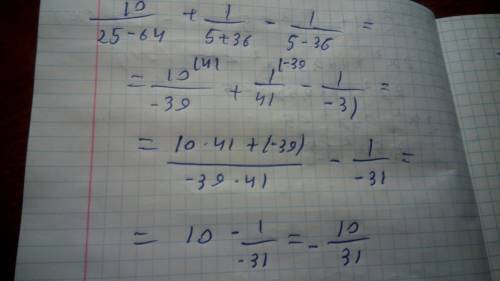 10/(25-64) + 1/(5+36) - 1/(5-36) =
= 10^(41/-39 + 1^(-39/41 - 1/-31 =
= (10·41+(-39))/(-39·41) - 1/-31 =
= 10 - 1/-31 = - 10/31